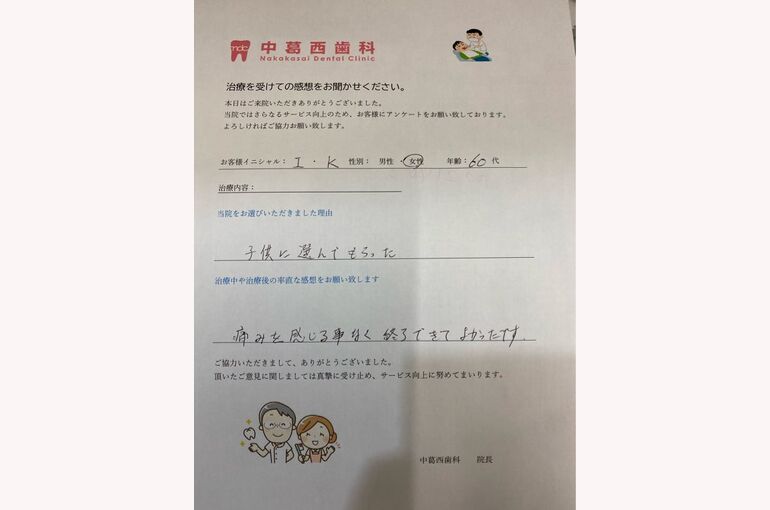 ndc
中葛西歯科
Nakakasai Dental Clinic
治療を受けての感想をお聞かせください。
本日はご来院いただきありがとうございました。
当院ではさらなるサービス向上のため、お客様にアンケートをお願い致しております。
よろしければご協力お願い致します。
お客様イニシャル： I ・ K 性別： 男性 ・ 女性 年齢：60代
治療内容：
当院をお選びいただきました理由
子供に選んでもらった
治療中や治療後の率直な感想をお願い致します
痛みを感じる事なく終了できてよかったです。
ご協力いただきまして、ありがとうございました。
頂いたご意見に関しましては真摯に受け止め、サービス向上に努めてまいります。
中葛西歯科 院長